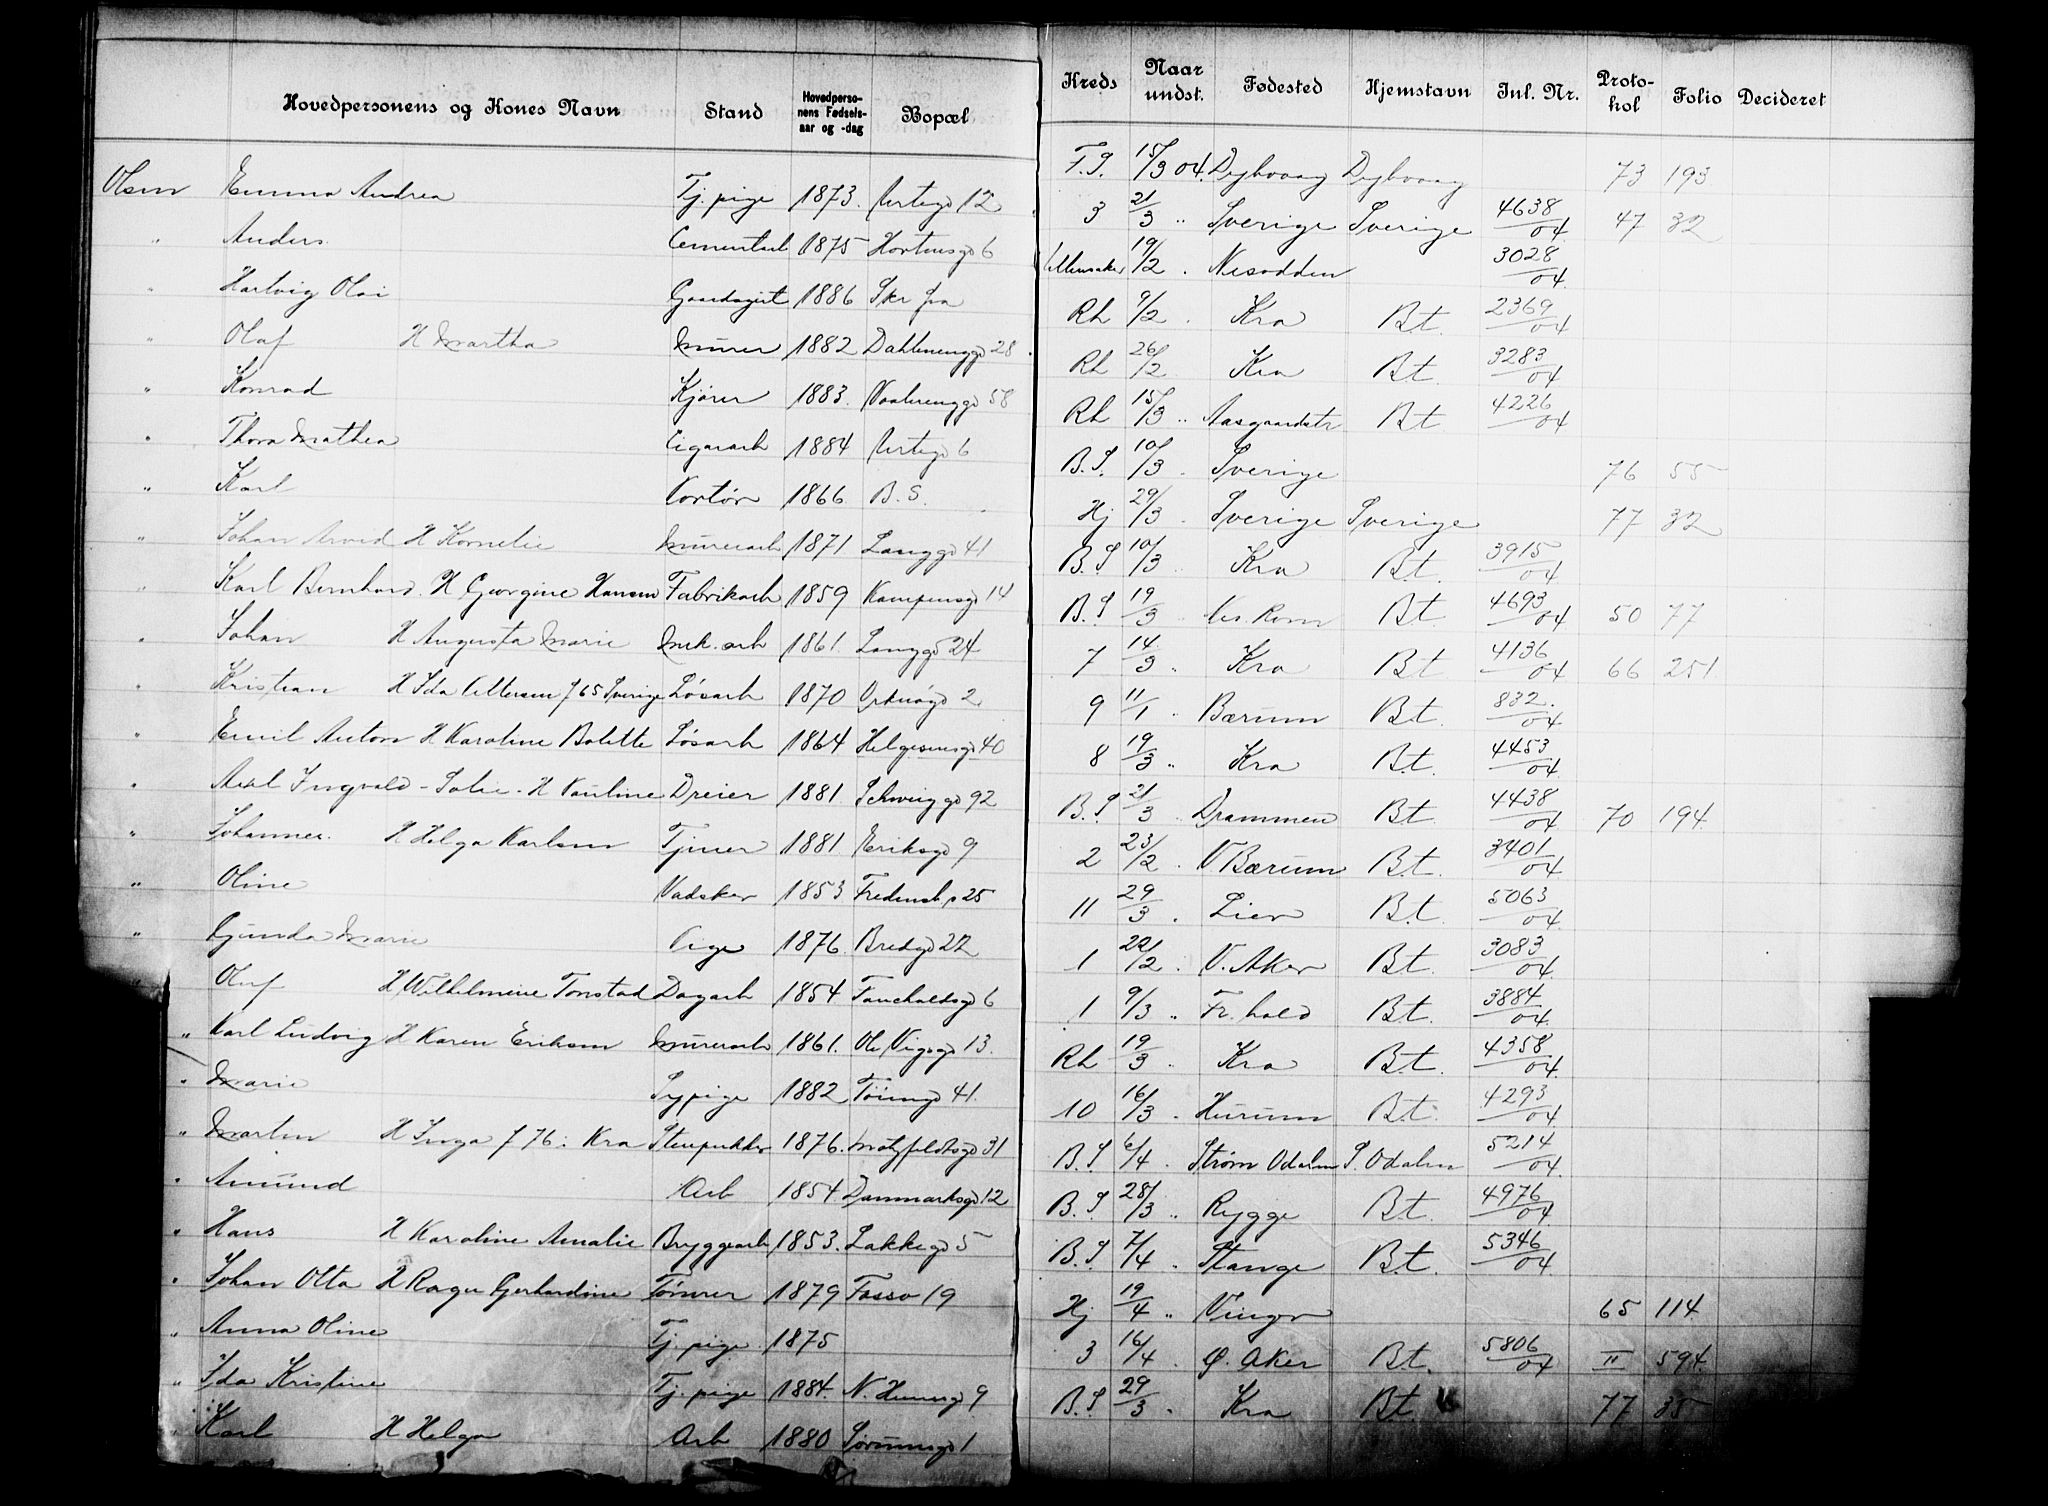 Hovedpersonens og Kones Navn | Stand | Hovedpersonens Fødselsaar og -dag | Bopæl | Kreds | Naar undst. | Fødested | Hjemstavn | Inl. Nr. | Protokol | Folio | Decideret
Olsen Emma Andrea | Tj. pige | 1873. | Urtegd 12 | F.S. | 15/3 04. | Dybvaag | Dybvaag | | 73 | 193
" Anders | Cementarb | 1875 | Hortensgd 6 | 3 | 21/3 " | Sverige | Sverige | 4638/04 | 47 | 32
" Hartvig Olai | Gaardsgut | 1886 | Skr fra | Ullensaker | 19/2 . | Nesodden | | 3028/04
" Olaf H Martha | Murer | 1882 | Dahlenenggd 28 | Rh | 9/2 . | Kra | Bt. | 2369/04
" Konrad | Kjører | 1883. | Vaalerenggd 58 | Rh | 26/2 | Kra | Bt. | 3283/04
" Thora Mathea | Cigararb | 1884 | Urtegd 6 | Rh | 15/3 " | Aasgaardstr | Bt | 4226/04
" Karl | Kortør | 1866 | B.S. | B.S. | 10/3 . | Sverige | | | 76 | 55
" Johan Arvid H Kornelie | Murerarb | 1871 | Langgd 41 | Hj | 29/3 . | Sverige | Sverige | | 77 | 32
" Karl Bernhard. H Georgine Hansen | Fabrikarb | 1859 | Kampensgd 14 | B.S | 10/3 " | Kra | Bt. | 3915/04
" Johan H Augusta Marie | Mek. arb | 1861. | Langgd 24 | B.S | 19/3 . | Nes Rom | Bt | 4693/04 | 50 | 77
" Kristian H Ida Ottersen f 65 Sverige | Løsarb | 1870 | Orknøgd 2 | 7 | 14/3 " | Kra | Bt | 4136/04 | 66 | 251
" Emil Anton H Karoline Bolette | Løsarb | 1864 | Helgesensgd 40 | 9 | 11/1 " | Bærum | Bt. | 832./04
" Axel Ingvald - Solie - H Pauline | Dreier | 1881 | Schweiggd 92 | 8 | 19/3 " | Kra | Bt. | 4453/04
" Johannes. H Helga Karlsen | Tjener | 1881 | Eriksgd 9 | B.S | 21/3 . | Drammen | Bt. | 4438/04 | 70 | 194.
" Oline | Vadsker | 1853 | Fredensb 25 | 2 | 23/2 . | V Bærum | Bt. | 3401/04
" Gunda Marie | Pige | 1876. | Bredgd 22 | 11 | 29/3 . | Lier | Bt. | 5063/04
" Oluf H Wilhelmine Tonstad | Dagarb | 1854 | Fauchaldsgd 6 | 1 | 22/2 . | V. Aker | Bt. | 3083/04
" Karl Ludvig H Karen Eriksen | Murerarb | 1861. | Ole Vigsgd 13. | 1 | 9/3 " | Fr. hald | Bt. | 3884/04
" Marie | Sypige | 1882 | Tøiengd 41. | Rh | 19/3 " | Kra | Bt. | 4358/04
" Martin H Inga f 76 i Kra | Stenpukker | 1876. | Motzfeldtsgd 31 | 10 | 16/3 . | Hurum | Bt. | 4293/04
" Amund | Arb | 1854 | Danmarksgd 12 | B.S | 6/4 . | Strøm Odalen | S. Odalen | 5214/04
" Hans H Karoline Amalie | Bryggearb | 1853. | Lakkegd 5 | B.S | 28/3 " | Rygge | Bt. | 4976/04
" Johan Otto H Gerhardine | Tømrer | 1879 | Fosso 19 | B.S | 7/4 " | Stange | Bt. | 5346/04
" Anna Oline | Tj. pige | 1875 | | Hj | 19/4 " | Vinger | | | 65 | 114
" Ida Kristine | Tj. pige | 1884. | N. Hansgd 9 | 3 | 16/4 . | Ø. Aker | Bt. | 5806/04 | II | 594
Karl H Helga | Arb | 1880 | Sørumsgd 1 | B.S | 29/3 . | Kra | Bt | | 77 | 35